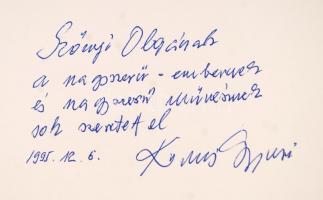 Szőnyi Olgának
a nagyszerű - embernek
és nagyszerű művésznek
sok szeretettel
1995. 12. 6.